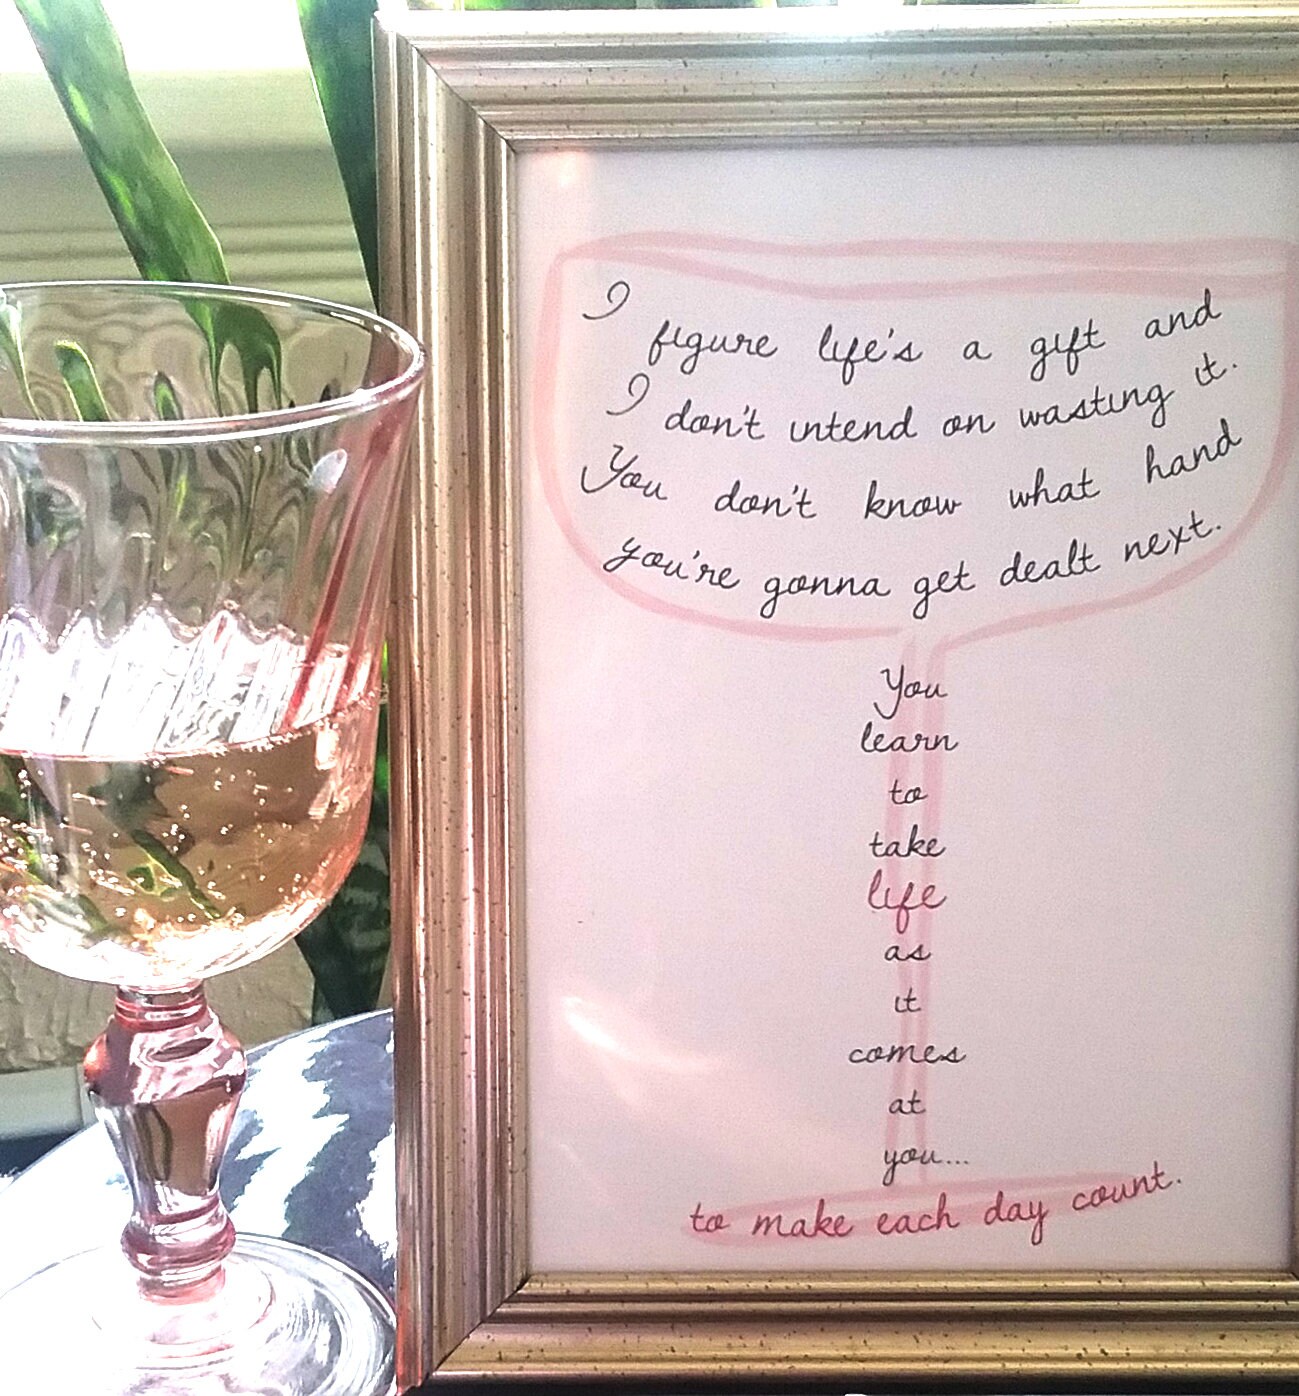 I
figure life's a gift and
I don't intend on wasting it.
You don't know what hand
you're gonna get dealt next.
You
learn
to
take
life
as
it
comes
at
you...
to make each day count.